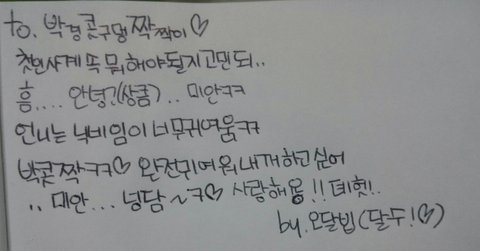 to. 박경콧구멍짝짝이♡
첫인사 계속 뭐해야될지고민되..
흠.... 안녕?(상콤).. 미안ㅋㅋ
언니는 닉네임이너무귀여움ㅋㅋ
박콧짝ㅋㅋ♡ 완전귀여워내꺼하고싶어
.. 미안... 넝담~ㅋ♡ 사랑해용!! 데헷!..
by. 오달빔(달두!♡)